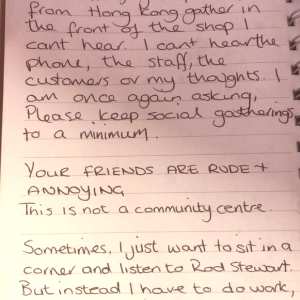 from Hong Kong gather in
the front of the shop I
cant hear. I cant hear the
phone, the staff, the
customers or my thoughts. I
am once again, asking,
Please keep social gatherings
to a minimum.
YOUR FRIENDS ARE RUDE +
ANNOYING
This is not a community centre.
Sometimes, I just want to sit in a
corner and listen to Rod Stewart.
But instead I have to do work,